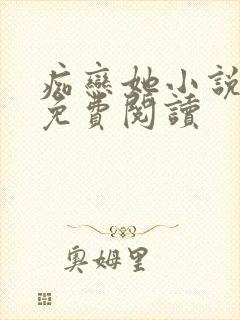 痴戀她小說
免費閱讀
奧姆里